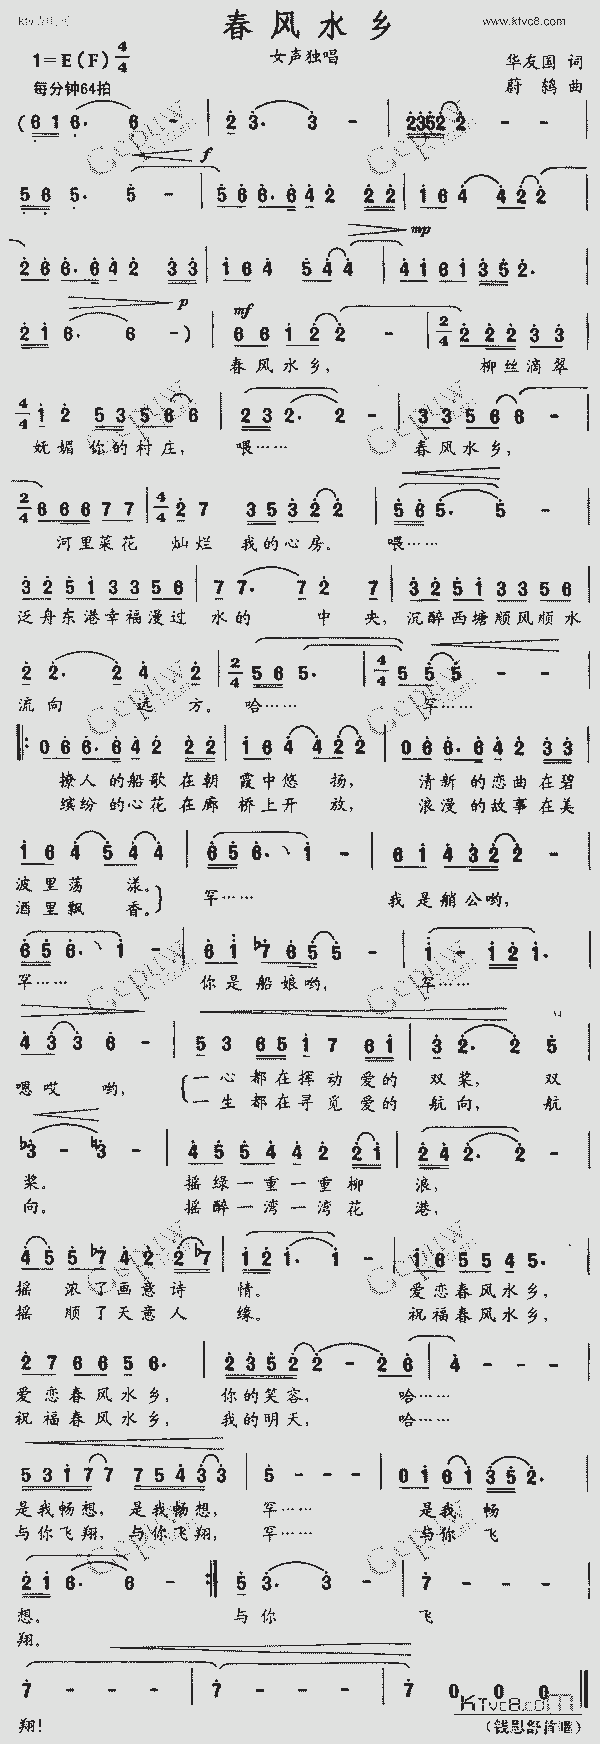 www.ktvc8.com
春风水乡
女声独唱
1=E(F) 4/4
每分钟64拍
华友国 词
蔚鸫 曲
(6 1 6· 6 - | 2 3· 3 - | 2 3 5 2 2 -
f
5 6 5· 5 - | 5 6 6·6 4 2 2 2 | 1 6 4 4 2 2
mp
2 6 6·6 4 2 3 3 | 1 6 4 5 4 4 | 4 1 6 1 3 5 2·
p mf
2 1 6· 6 - ) | 6 6 1 2 2 - | 2/4 2 2 2 3 3
春风水乡, 柳丝滴翠
4/4 1 2 5 3 5 6 6 | 2 3 2· 2 - | 3 3 5 6 6 -
妩媚你的村庄, 喂…… 春风水乡,
2/4 6 6 6 7 7 | 4/4 2 7 3 5 3 2 2 | 5 6 5· 5 -
河里菜花 灿烂 我的心房。 喂……
3 2 5 1 3 3 5 6 | 7 7· 7 2 7 | 3 2 5 1 3 3 5 6
泛舟东港幸福漫过 水的 中央, 沉醉西塘顺风顺水
2 2· 2 4 2 | 2/4 5 6 5· | 4/4 5 5 5 - -
流向 远方。 哈…… 罕……
0 6 6·6 4 2 2 2 | 1 6 4 4 2 2 | 0 6 6·6 4 2 3 3
撩人的船歌在朝 霞中悠扬, 清新的恋曲在碧
缤纷的心花在廊 桥上开放, 浪漫的故事在美
1 6 4 5 4 4 | 6 5 6· 1 - | 6 1 4 3 2 2 -
波里荡漾。 罕…… 我是艄公哟,
酒里飘香。
6 5 6· 1 - | 6 1 b7 6 5 5 - | 1 - 1 2 1·
罕…… 你是船娘哟, 罕……
4 3 3 6 - | 5 3 6 5 1 7 6 1 | 3 2· 2 5
嗯哎哟, 一心都在挥动爱的 双桨, 双
一生都在寻觅爱的 航向, 航
b3 - b3 - | 4 5 5 4 4 2 2 1 | 2 4 2· 2 -
桨。 摇绿一重一重柳 浪,
向。 摇醉一湾一湾花 港,
4 5 5 b7 4 2 2 b7 | 1 2 1· 1 - | 1 6 5 5 4 5·
摇 浓了画意诗 情。 爱恋春风水乡,
摇 顺了天意人 缘。 祝福春风水乡,
2 7 6 6 5 6· | 2 3 5 2 2 - 2 6 | 4 - - -
爱恋春风水乡, 你的笑容, 哈……
祝福春风水乡, 我的明天, 哈……
5 3 1 7 7 7 5 4 3 3 | 5 - - - | 0 1 6 1 3 5 2·
是我畅想, 是我畅想, 罕…… 是我 畅
与你飞翔, 与你飞翔, 罕…… 与你 飞
2 1 6· 6 - :| 5 3· 3 - | 7 - - -
想。 与你 飞
翔。
7 - - - | 7 - - - | 7 0 0 0
翔!
KTvc8.com